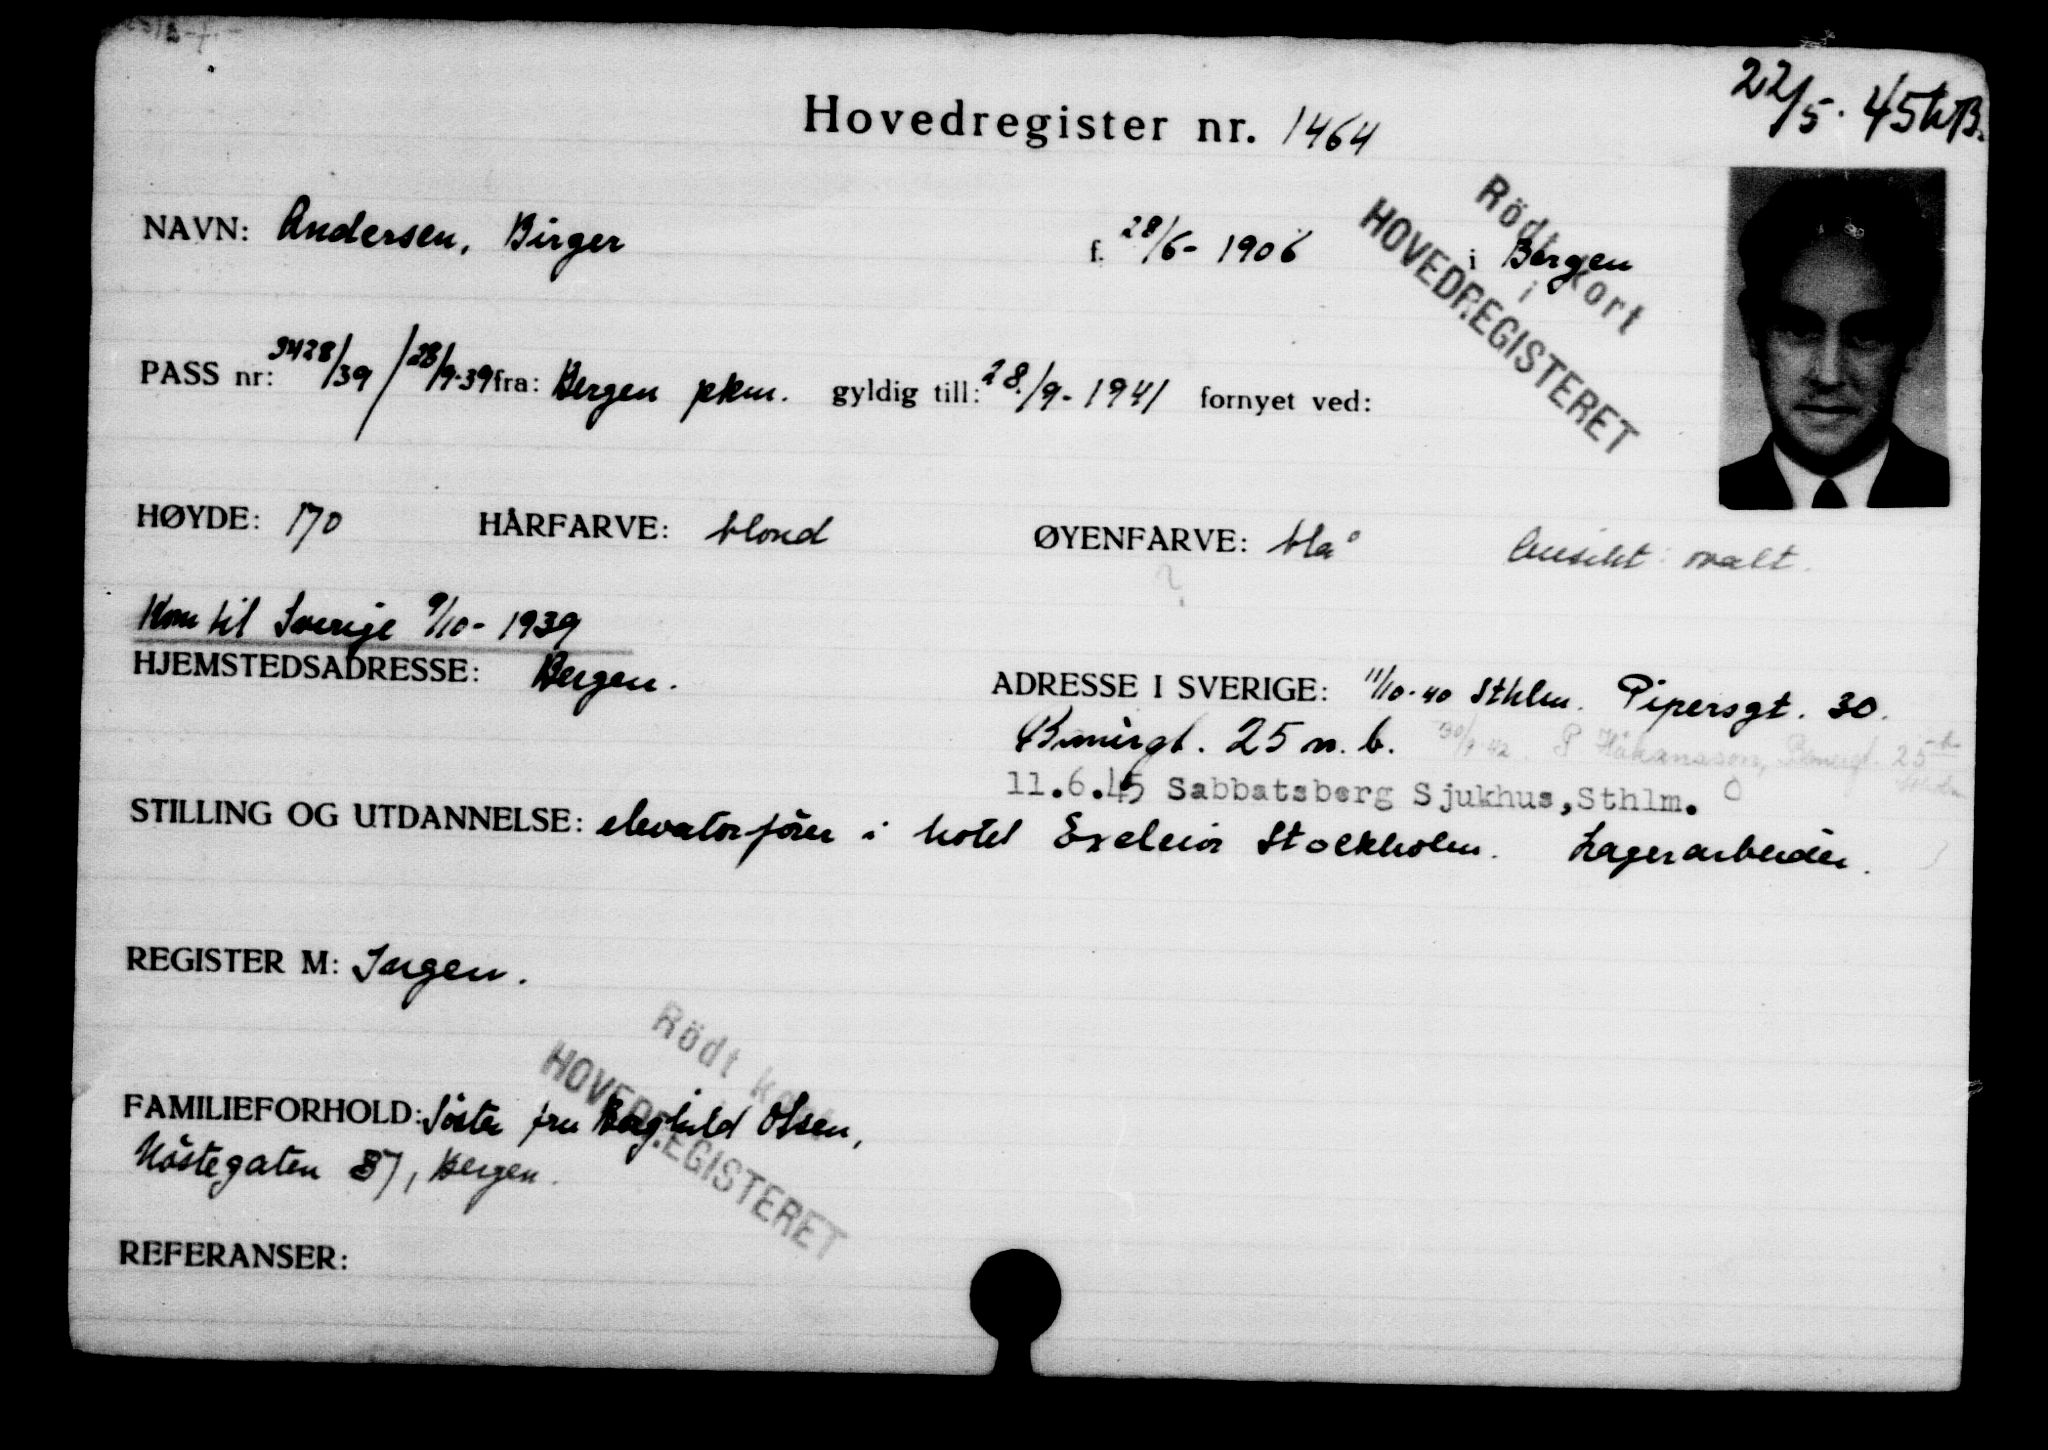 22/5. 45
Hovedregister nr. 1464
Rödt kort
i
HOVEDREGISTERET
NAVN: Andersen, Birger f. 28/6- 1906 i Bergen
PASS nr: 3428/39 / 28/9-39 fra: Bergen pkm. gyldig till: 28./9- 1941 fornyet ved:
HØYDE: 170 HÅRFARVE: blond ØYENFARVE: blå Ansikt: ovalt.
?
Kom til Sverige 9/10- 1939
HJEMSTEDSADRESSE: Bergen. ADRESSE I SVERIGE: 11/10-40 Sthlm. Pipersgt. 30.
25 n. b. P Håkansson, 25
11.6.45 Sabbatsberg Sjukhus, Sthlm.
STILLING OG UTDANNELSE: elevatorförer i hotel Exelsior Stockholm. Lagerarbeider.
REGISTER M: Ingen.
Rödt kort
HOVEDREGISTERET
FAMILIEFORHOLD: Söster fru Borghild Olsen,
Nöstegaten 87, Bergen.
REFERANSER: